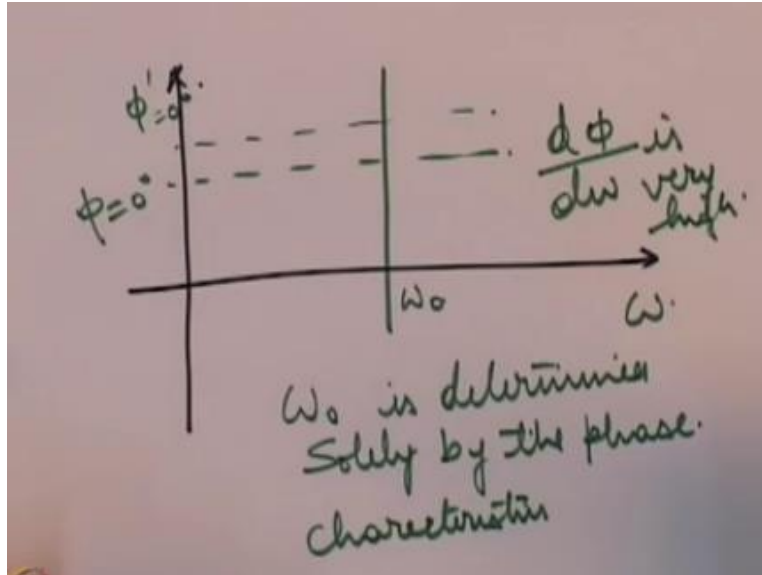 ϕ'=0°
ϕ=0°
dϕ/dω is
very
high.
ω₀
ω.
ω₀ is determined
Solely by the phase.
charecteristics